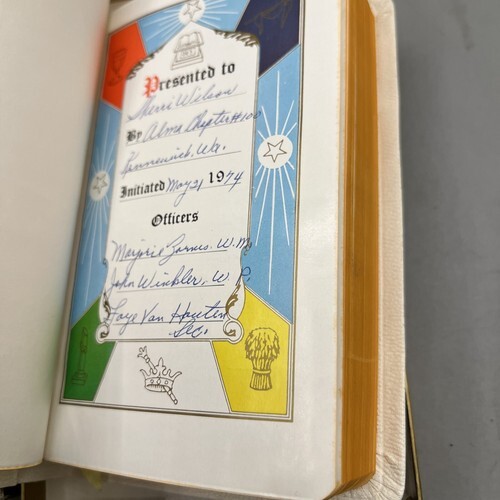 Presented to
Sherri Wilson
By Alma Chapter #100
Kennewick, Wa.
Initiated May 21 1974
Officers
Marjorie Barnes, W.M.
John Winkler, W.P.
Faye Van Houten
Sec.